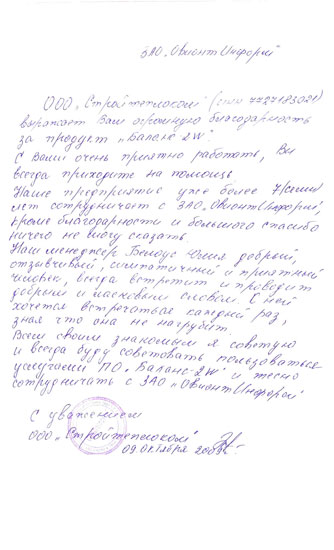 ЗАО „Овионт Информ"
ООО „Стройтеплоком"
выражает Вам огромную благодарность
за продукт „Баланс-2W"
С Вами очень приятно работать, Вы
всегда приходите на помощь
Наше предприятие уже более 7 (семи)
лет сотрудничает с ЗАО „Овионт Информ",
кроме благодарности и большого спасибо
ничего не могу сказать.
Наш менеджер Белоус Юлия добрый,
отзывчивый, симпатичный и приятный
человек, всегда встретит и проводит
добрым и ласковым словом. С ней
хочется встречаться каждый раз,
зная что она не нагрубит.
Всем своим знакомым я советую
и всегда буду советовать пользоваться
услугами ПО „Баланс-2W" и тесно
сотрудничать с ЗАО „Овионт Информ"
С уважением
ООО „Стройтеплоком"
09 октября